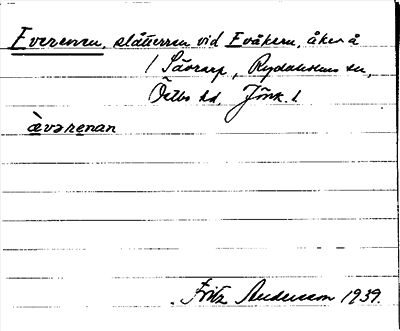 Everenen, slåtterren vid Evåkern, åker å
/ Säorarp, Rydaholms sn,
Östbo hd. Jönk. l
èvərenan
Fritz Andersson 1939.